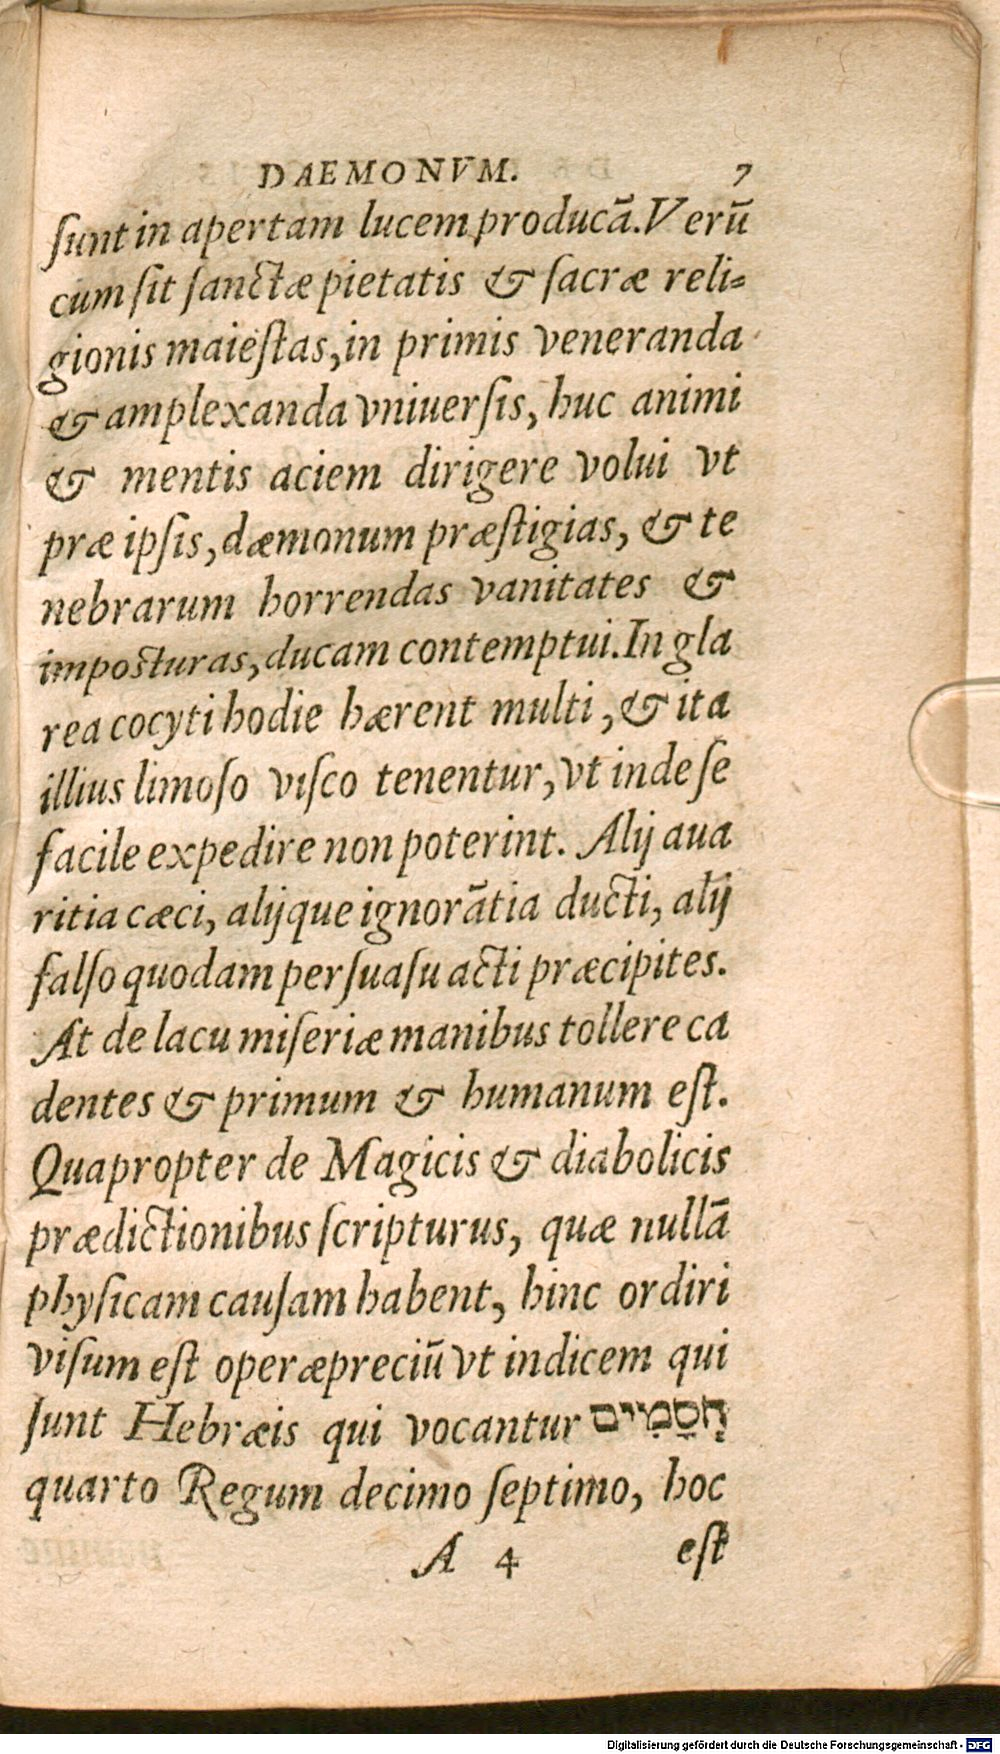 DAEMONVM. 7
ſunt in apertam lucem producā. Verū
cum ſit ſanctæ pietatis & ſacræ reli-
gionis maieſtas, in primis veneranda
& amplexanda vniuerſis, huc animi
& mentis aciem dirigere volui vt
præ ipſis, dæmonum præſtigias, & te
nebrarum horrendas vanitates &
imposturas, ducam contemptui. In gla
rea cocyti hodie hærent multi, & ita
illius limoſo viſco tenentur, vt inde ſe
facile expedire non poterint. Alij aua
ritia cæci, alijque ignorātia ducti, alij
falſo quodam perſuaſu acti præcipites.
At de lacu miſeriæ manibus tollere ca
dentes & primum & humanum eſt.
Quapropter de Magicis & diabolicis
prædictionibus ſcripturus, quæ nullā
phyſicam cauſam habent, hinc ordiri
viſum eſt operæpreciū vt indicem qui
ſunt Hebræis qui vocantur חָסַמִּים
quarto Regum decimo ſeptimo, hoc
A 4 eſt
Digitalisierung gefördert durch die Deutsche Forschungsgemeinschaft - DFG